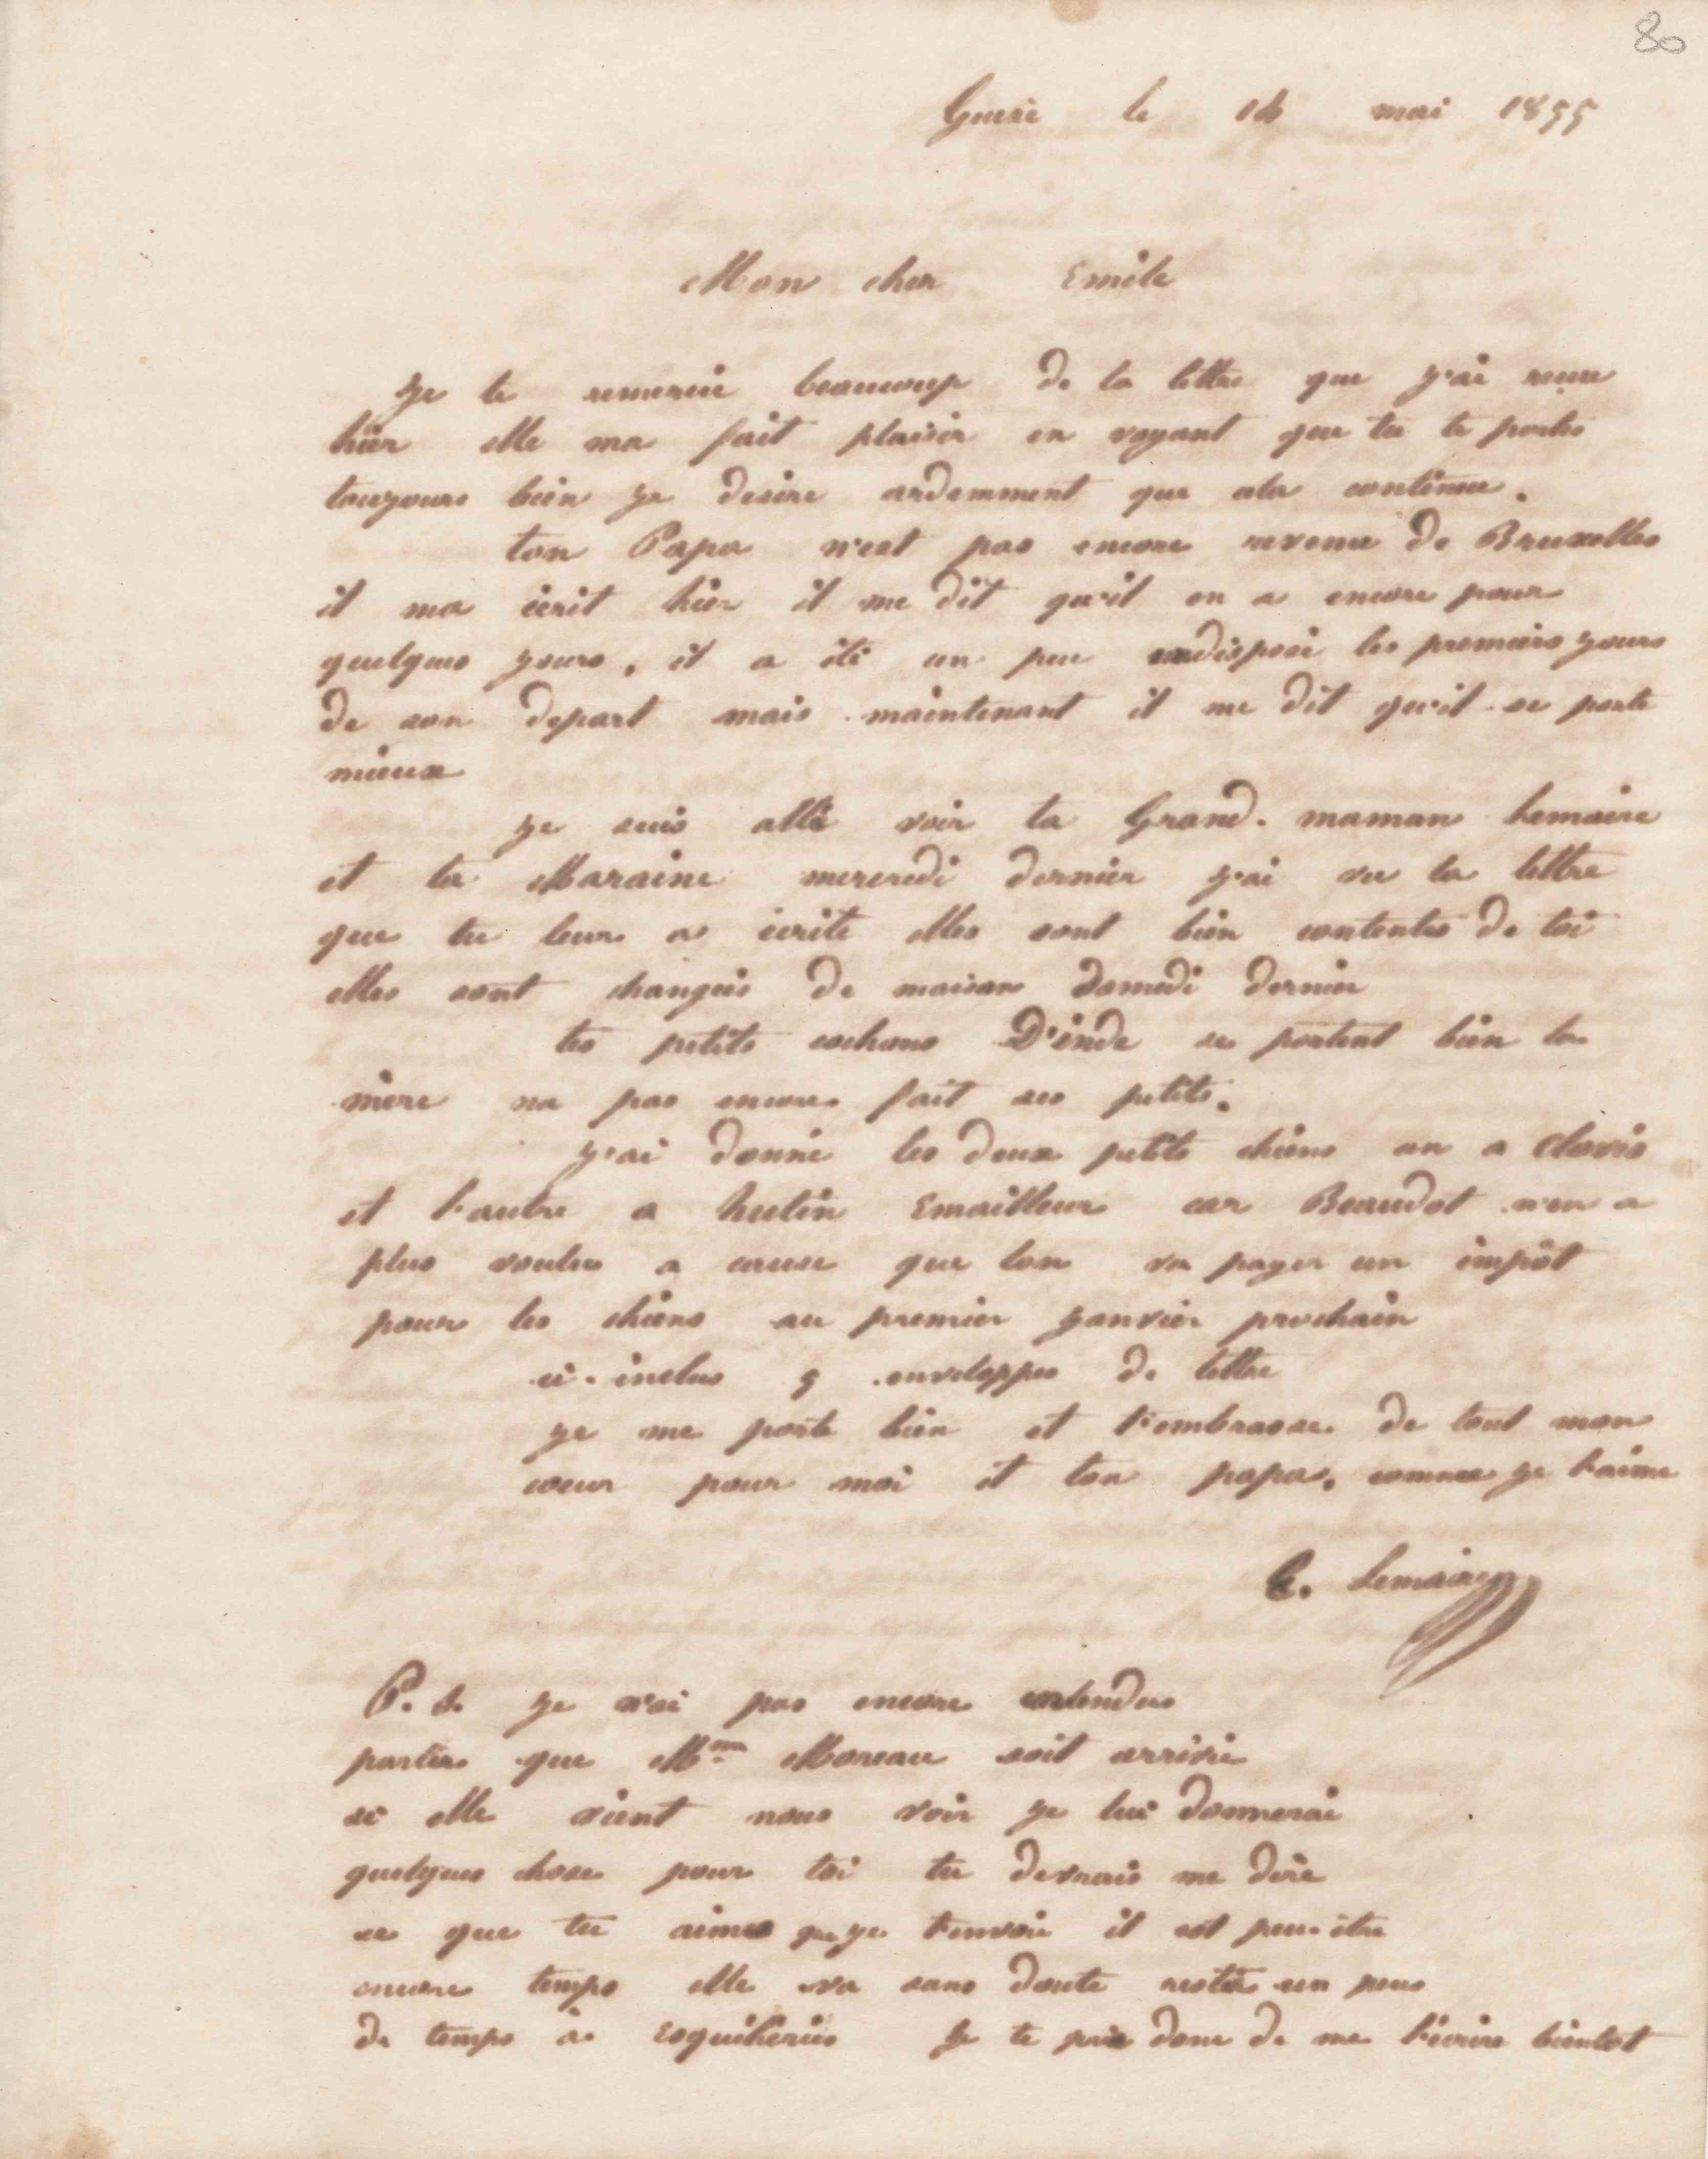 80
Guise le 14 mai 1855
Mon cher Emile
Je te remercie beaucoup de ta lettre que j'ai reçue
hier elle ma fait plaisir en voyant que tu te portes
toujours bien je desire ardemment que cela continue.
ton Papa n'est pas encore revenu de Bruxelles
il ma écrit hier il me dit qu'il en a encore pour
quelques jours, il a été un peu indisposé les premiers jours
de son depart mais maintenant il me dit qu'il se porte
mieux
je suis allé voir ta Grand-maman Lemaire
et ta Maraine mercredi dernier j'ai vu la lettre
que tu leur as écrite elles sont bien contentes de toi
elles sont changées de maison Samedi dernier
tes petits cochons D'inde se portent bien la
mère na pas encore fait ses petits.
j'ai donné les deux petits chiens un a Clovis
et l'autre a hutin Emailleur car Beaudot n'en a
plus voulu a cause que lon va payer un impôt
pour les chiens au premier janvier prochain
ci-inclus 5 enveloppes de lettre
je me porte bien et t'embrasse de tout mon
coeur pour moi et ton papa. comme je t'aime
E. Lemaire
P.S. je n'ai pas encore entendu
parler que Mme Moreau soit arrivée
si elle vient nous voir je lui donnerai
quelques chose pour toi tu devrais me dire
ce que tu aimes que je t'envoie il est peu-être
encore temps elle va sans doute resté un peu
de temps à Esquiheries Je te prie donc de me l'écrire bientôt